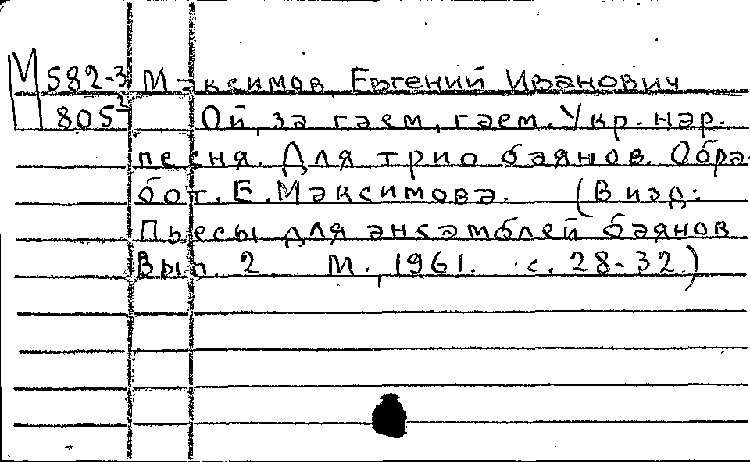 М 582-3 Максимов, Евгений Иванович
805² Ой, за гаем, гаем. Укр. нар.
песня. Для трио баянов. Обра-
бот. Е. Максимова. (В изд:
Пьесы для ансамблей баянов
Вып. 2 М., 1961. с. 28-32)